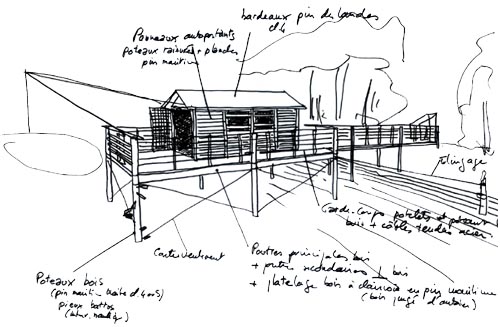 bardeaux pin des landes
cl4
Panneaux autoportants
poteaux rainurés + planches
pin maritime
Garde-corps potelets et poteaux
bois + câbles tendus acier.
Contreventement
Poutres principales bois
+ poutres secondaires ⊥ bois
+ platelage bois à clairevoie en pin maritime
(bois purgé d'aubier)
Poteaux bois
(pin maritime traité cl.4 ou 5)
pieux battus